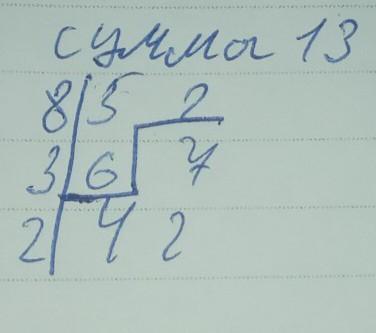 сумма 13
8 5 2
3 6 7
2 4 2